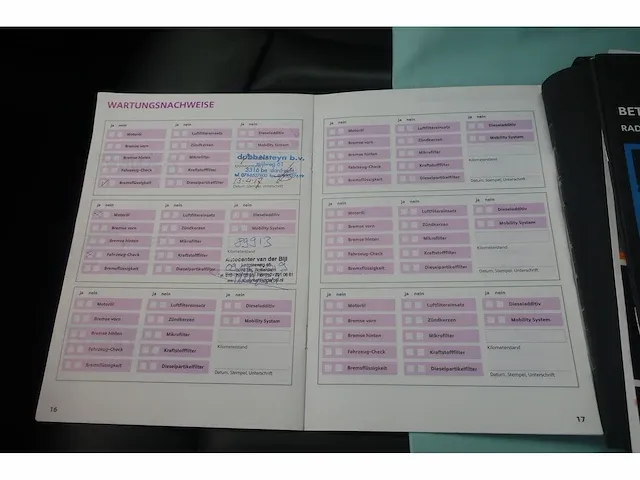 WARTUNGSNACHWEISE
ja nein ja nein ja nein
Motoröl Luftfiltereinsatz Dieseladditiv
Bremse vorn Zündkerzen Mobility System
Bremse hinten Mikrofilter
dubbelsteyn b.v.
Fahrzeug-Check Kraftstofffilter
3316 be
Bremsflüssigkeit Dieselpartikelfilter
ja nein ja nein ja nein
Motoröl Luftfiltereinsatz Dieseladditiv
Bremse vorn Zündkerzen Mobility System
Bremse hinten Mikrofilter
89913
Kilometerstand
Fahrzeug-Check Kraftstofffilter
Autocenter van der Bijl
Bremsflüssigkeit Dieselpartikelfilter
ja nein ja nein ja nein
Motoröl Luftfiltereinsatz Dieseladditiv
Bremse vorn Zündkerzen Mobility System
Bremse hinten Mikrofilter
Kilometerstand
Fahrzeug-Check Kraftstofffilter
Bremsflüssigkeit Dieselpartikelfilter
Datum, Stempel, Unterschrift
16
ja nein ja nein ja nein
Motoröl Luftfiltereinsatz Dieseladditiv
Bremse vorn Zündkerzen Mobility System
Bremse hinten Mikrofilter
Kilometerstand
Fahrzeug-Check Kraftstofffilter
Bremsflüssigkeit Dieselpartikelfilter
Datum, Stempel, Unterschrift
ja nein ja nein ja nein
Motoröl Luftfiltereinsatz Dieseladditiv
Bremse vorn Zündkerzen Mobility System
Bremse hinten Mikrofilter
Kilometerstand
Fahrzeug-Check Kraftstofffilter
Bremsflüssigkeit Dieselpartikelfilter
Datum, Stempel, Unterschrift
ja nein ja nein ja nein
Motoröl Luftfiltereinsatz Dieseladditiv
Bremse vorn Zündkerzen Mobility System
Bremse hinten Mikrofilter
Kilometerstand
Fahrzeug-Check Kraftstofffilter
Bremsflüssigkeit Dieselpartikelfilter
Datum, Stempel, Unterschrift
17
BET
RAD